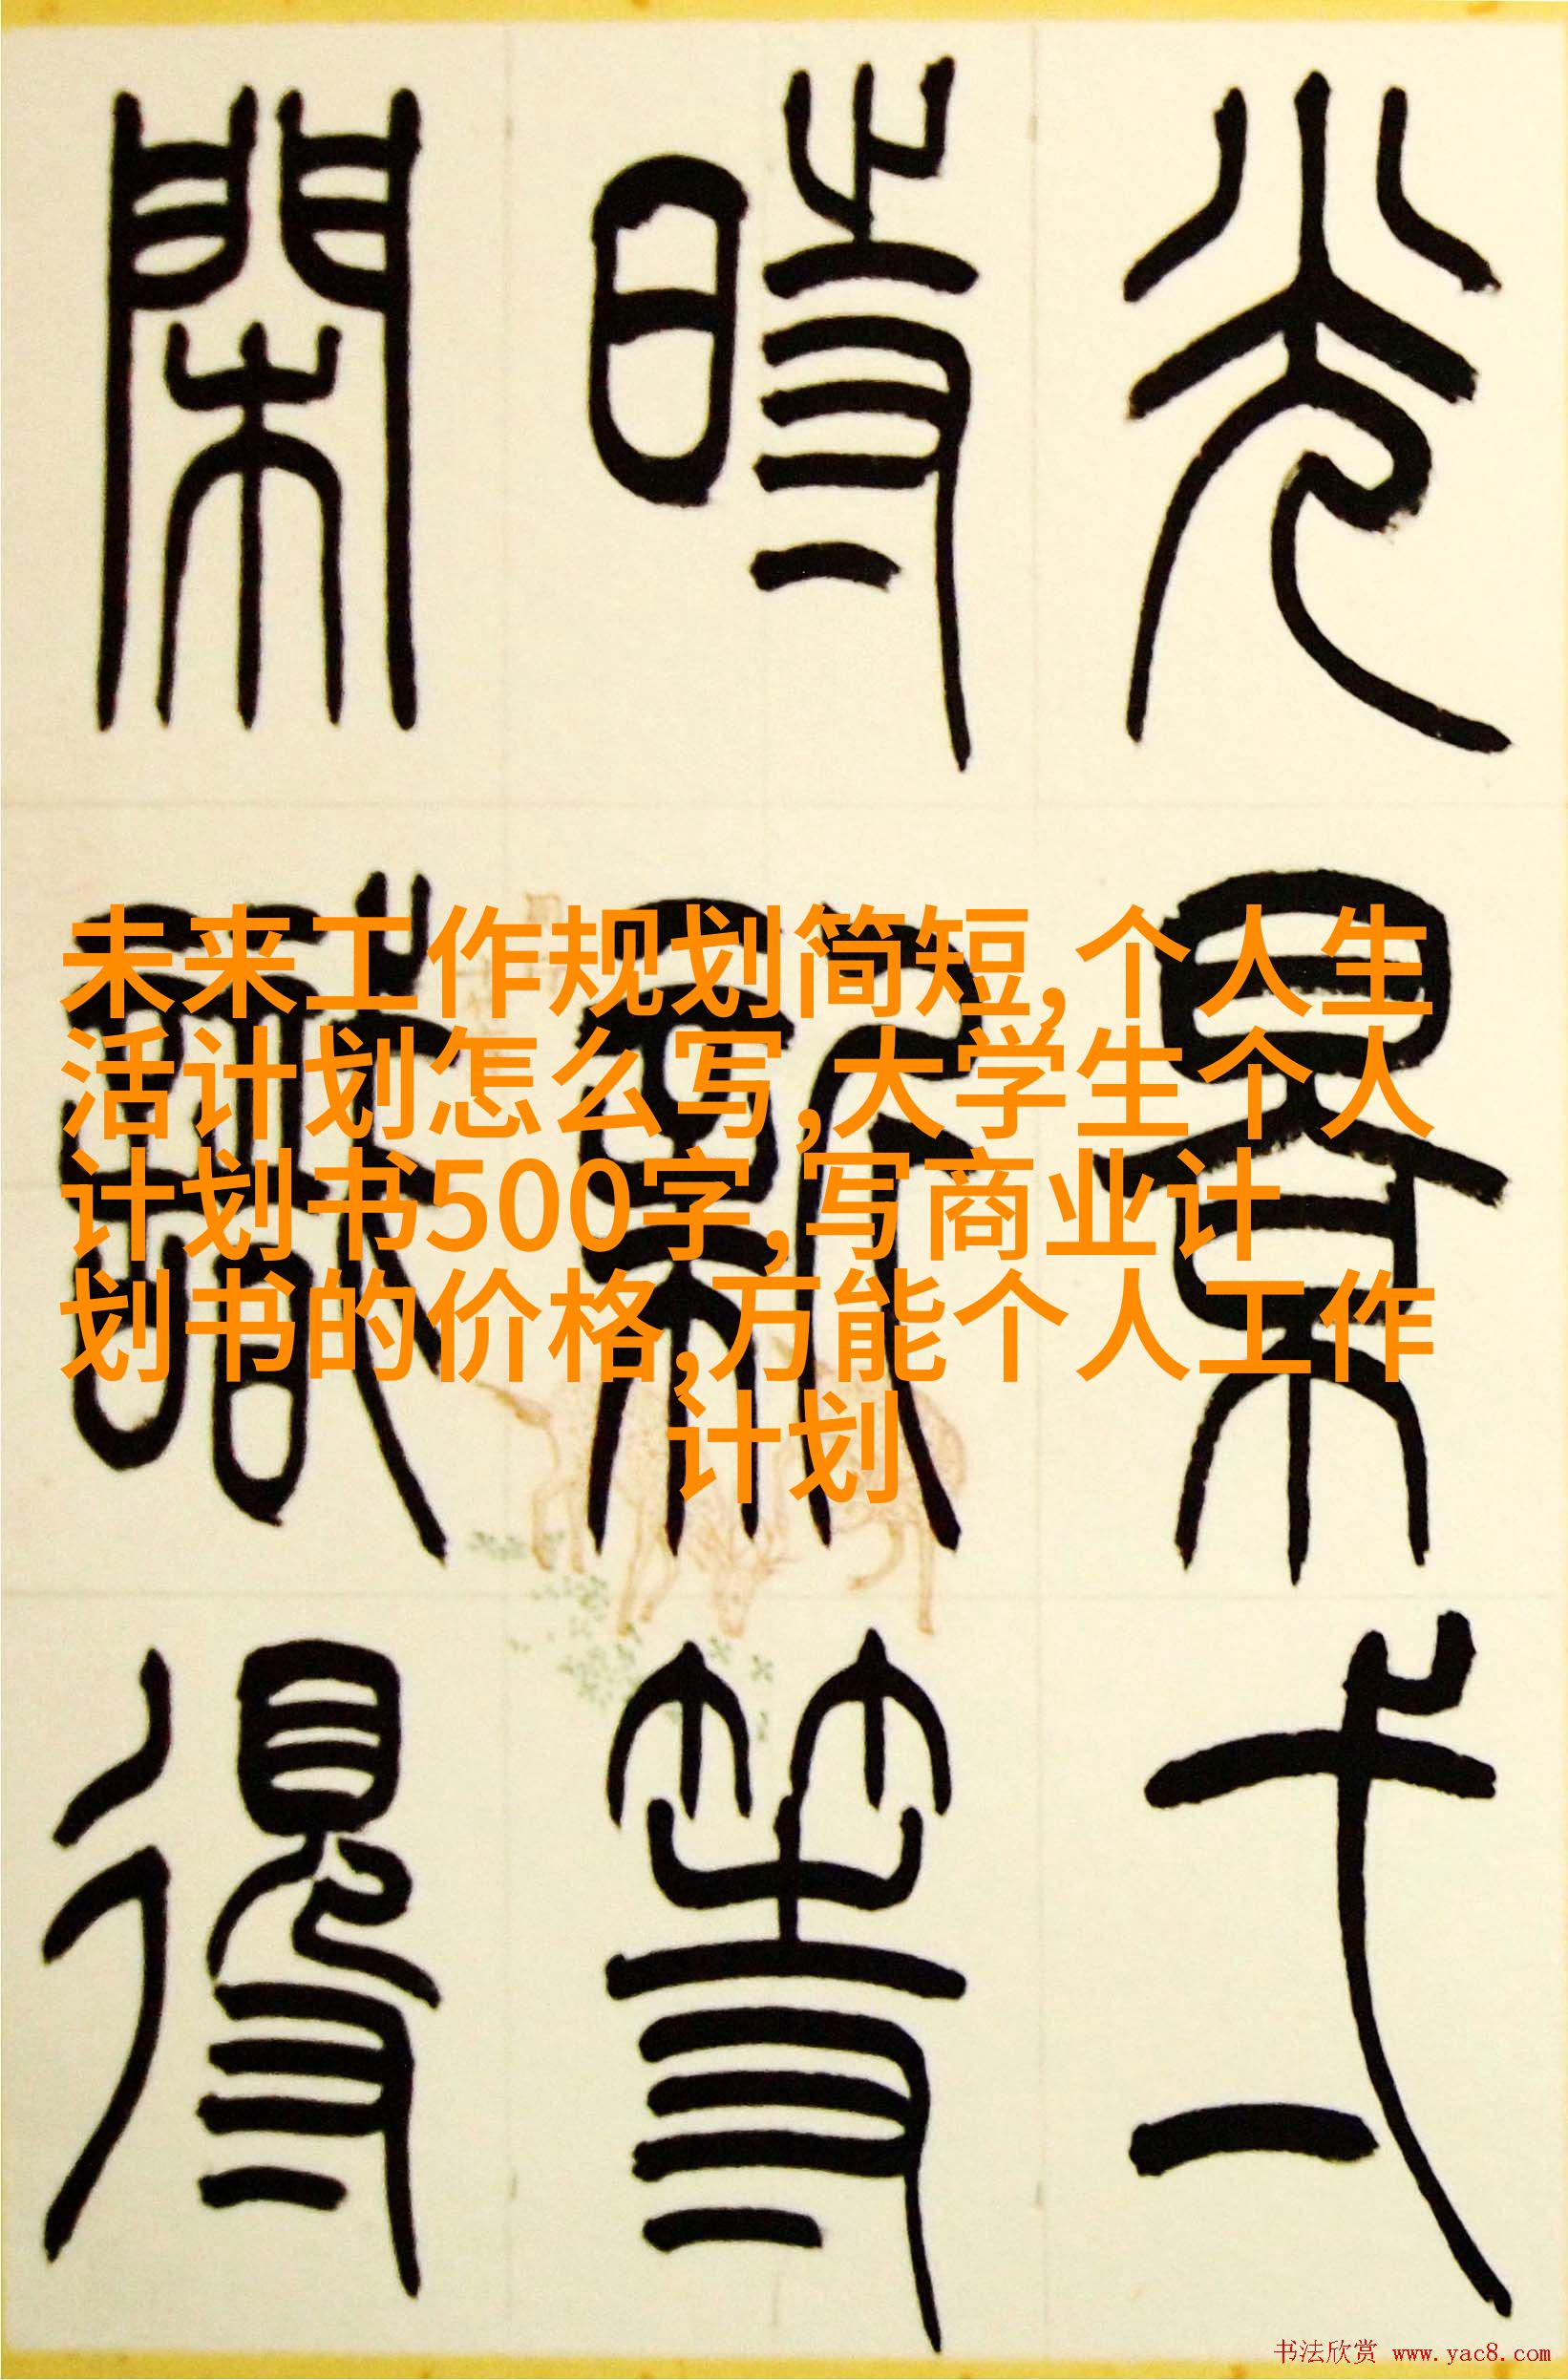 光景弌
時新等
閑識得
未来工作规划简短,个人生
活计划怎么写,大学生个人
计划书500字,写商业计
划书的价格,万能个人工作
计划
书法欣赏 www.yac8.com